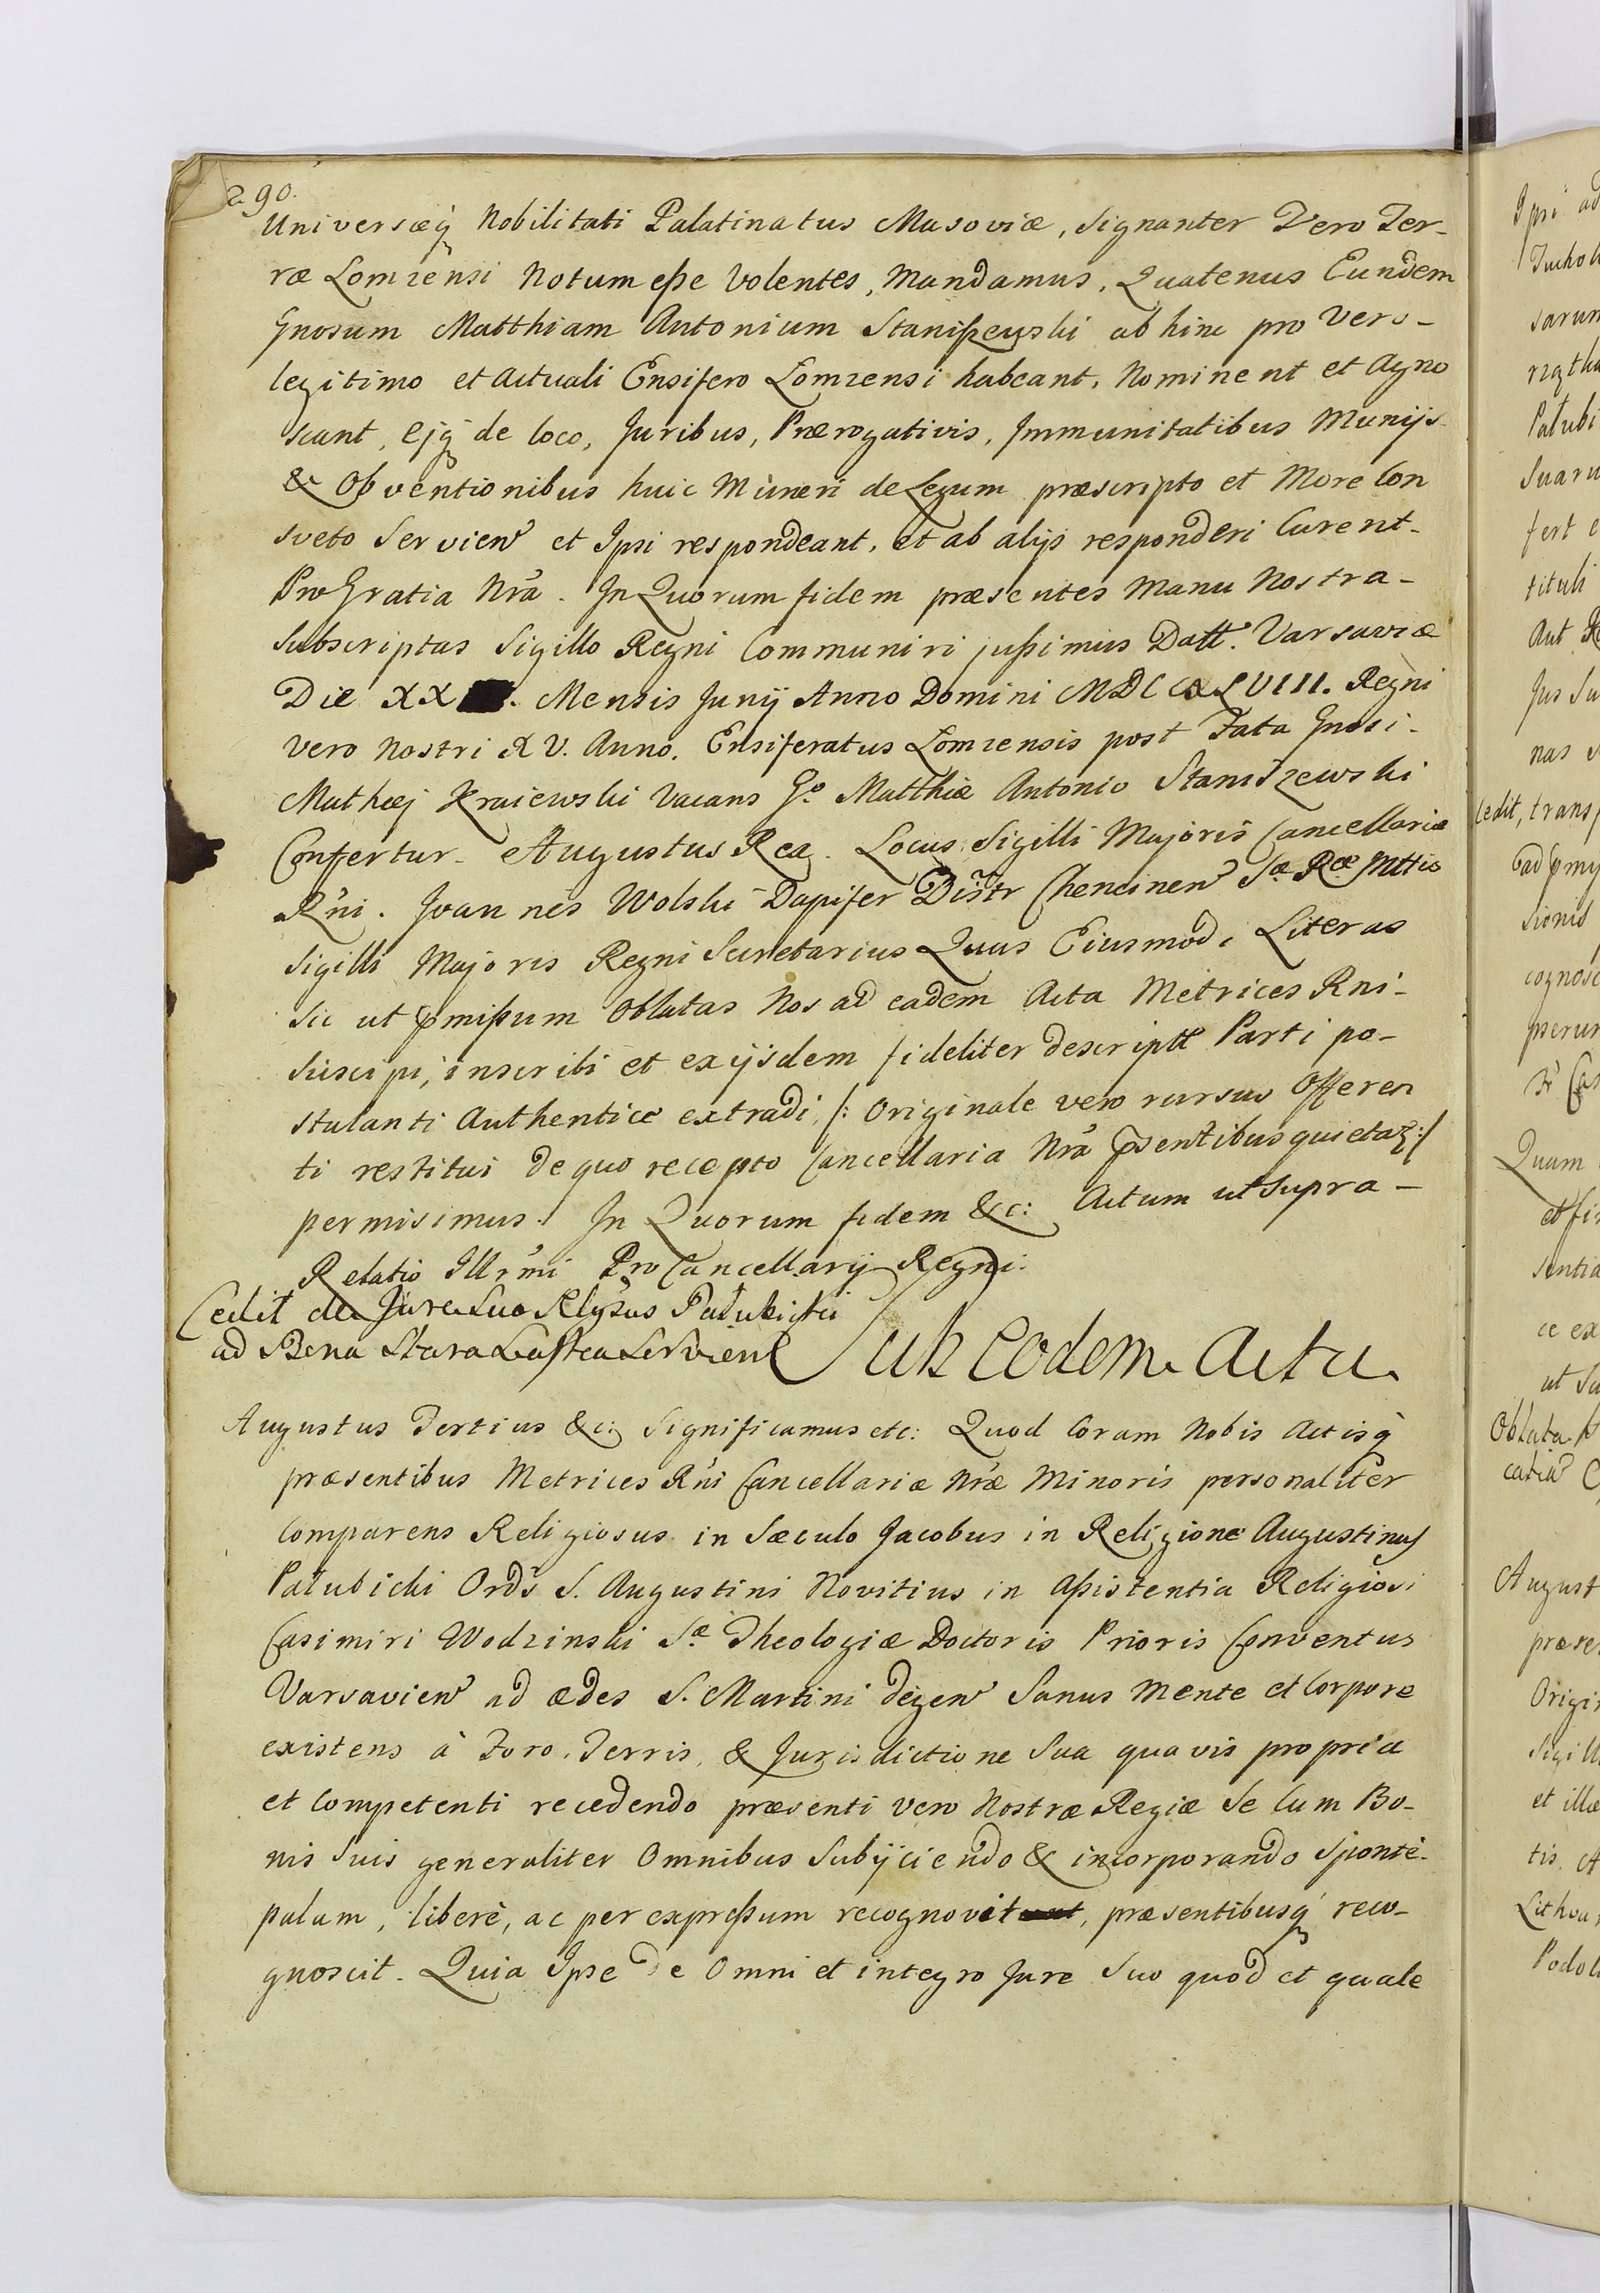 290.
Universæq́ Nobilitati Palatinatus Masoviæ, Signanter Vero Ter-
ræ Lomzensi Notum eße Volentes, Mandamus, Quatenus Eundem
Gnosum Matthiam Antonium Stanißewski ab hinc pro Vero-
legitimo et Actuali Ensifero Lomzensi habeant, Nominent et Agno
scant, ejq́ de loco, Juribus, Prærogativis, Immunitatibus Munijs
& Obventionibus huic Muneri de Legum præscripto et More Con
sveto Servien et Ipsi respondeant, et ab alijs responderi Curent-
Pro Gratia Nrã. In Quorum fidem præsentes Manu Nostra-
Subscriptas Sigillo Regni Communiri jußimus Datt. Varsaviæ
Die XX . Mensis Junij Anno Domini MDCCXLVIII. Regni
Vero Nostri XV. Anno. Ensiferatus Lomzensis post Fata Gnosi-
Mathæj Krajewski Vacans Go. Matthiæ Antonio Staniszewski
Confertur. Augustus Rex. Locus Sigilli Majoris Cancellariæ
Rñi. Joannes Wolski Dapifer Distr Chencinen Sæ Ræ Mttis
Sigilli Majoris Regni Secretarius Quas Eiusmodi Literas
Sic ut pmißum Oblatas Nos ad eadem Acta Metrices Rni-
Suscipi, inscribi et exijsdem fideliter descriptt Parti po-
stulanti Authenticè extradi /: Originale vero rursus Offeren
ti restitui de quo recepto Cancellaria Nrã psentibus quietat :/
permisimus. In Quorum fidem &c: Actum ut Supra-
Relatio Illrmi ProCancellarij Regni.
Cedit de Jure Suo Rlgsus Pałubicki
ad Bona Stara Lastea Servien
Sub eodem Actu.
Augustus Tertius &c: Significamus etc: Quod Coram Nobis Actisq́
præsentibus Metrices Rñi Cancellariæ Nræ Minoris personaliter
Comparens Religiosus in Sæculo Jacobus in Religione Augustinus
Pałubicki Ords S. Augustini Novitius in Aßistentia Religiosi
Casimiri Wodzinski Sæ Theologiæ Doctoris Prioris Conventus
Varsavien ad ædes S. Martini degen Sanus Mente et Corpore
existens à Foro, Terris, & Jurisdictione Sua quavis propria
et Competenti recedendo præsenti vero Nostræ Regiæ Se Cum Bo-
nis Suis generaliter Omnibus Subijciendo & incorporando Spontè-
palam, liberè, ac per expreßum recognovit, præsentibusq́ reco-
gnoscit. Quia Ipse De Omni et integro Jure Suo quod et quale
Ipsi ad
Tuchol
sarum
Pałubi
Suaru
fert e
tituli
Aut R
Jus Su
nas
Cedit, transf
ad
sionis
cognosc
pserun
Quam
et fir
sentia
ce ex
ut Su
Oblata
August
præse
Origin
Sigill
et illæ
tis. A
Lithva
Podol